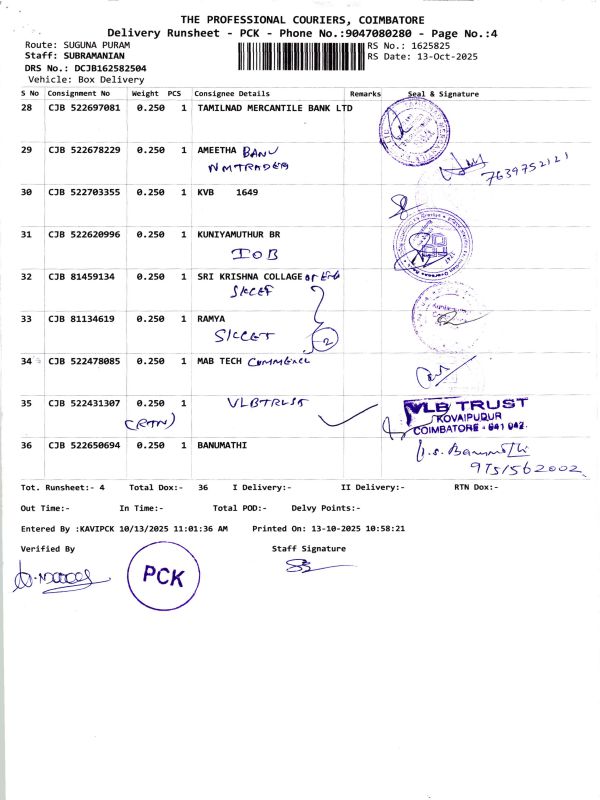 THE PROFESSIONAL COURIERS, COIMBATORE
Delivery Runsheet - PCK - Phone No.:9047080280 - Page No.:4
Route: SUGUNA PURAM RS No.: 1625825
Staff: SUBRAMANIAN RS Date: 13-Oct-2025
DRS No.: DCJB162582504
Vehicle: Box Delivery
S No Consignment No Weight PCS Consignee Details Remarks Seal & Signature
28 CJB 522697081 0.250 1 TAMILNAD MERCANTILE BANK LTD
29 CJB 522678229 0.250 1 AMEETHA BANU
NMTRADER 7639752121
30 CJB 522703355 0.250 1 KVB 1649
31 CJB 522620996 0.250 1 KUNIYAMUTHUR BR
IOB
32 CJB 81459134 0.250 1 SRI KRISHNA COLLAGE OF ENG
SKCET
33 CJB 81134619 0.250 1 RAMYA
SKCET 2
34 CJB 522478085 0.250 1 MAB TECH
35 CJB 522431307 0.250 1 VLBTRUST VLB TRUST
(RTN) KOVAIPUDUR
COIMBATORE - 641 042.
36 CJB 522650694 0.250 1 BANUMATHI
9751562002
Tot. Runsheet:- 4 Total Dox:- 36 I Delivery:- II Delivery:- RTN Dox:-
Out Time:- In Time:- Total POD:- Delvy Points:-
Entered By :KAVIPCK 10/13/2025 11:01:36 AM Printed On: 13-10-2025 10:58:21
Verified By Staff Signature
PCK